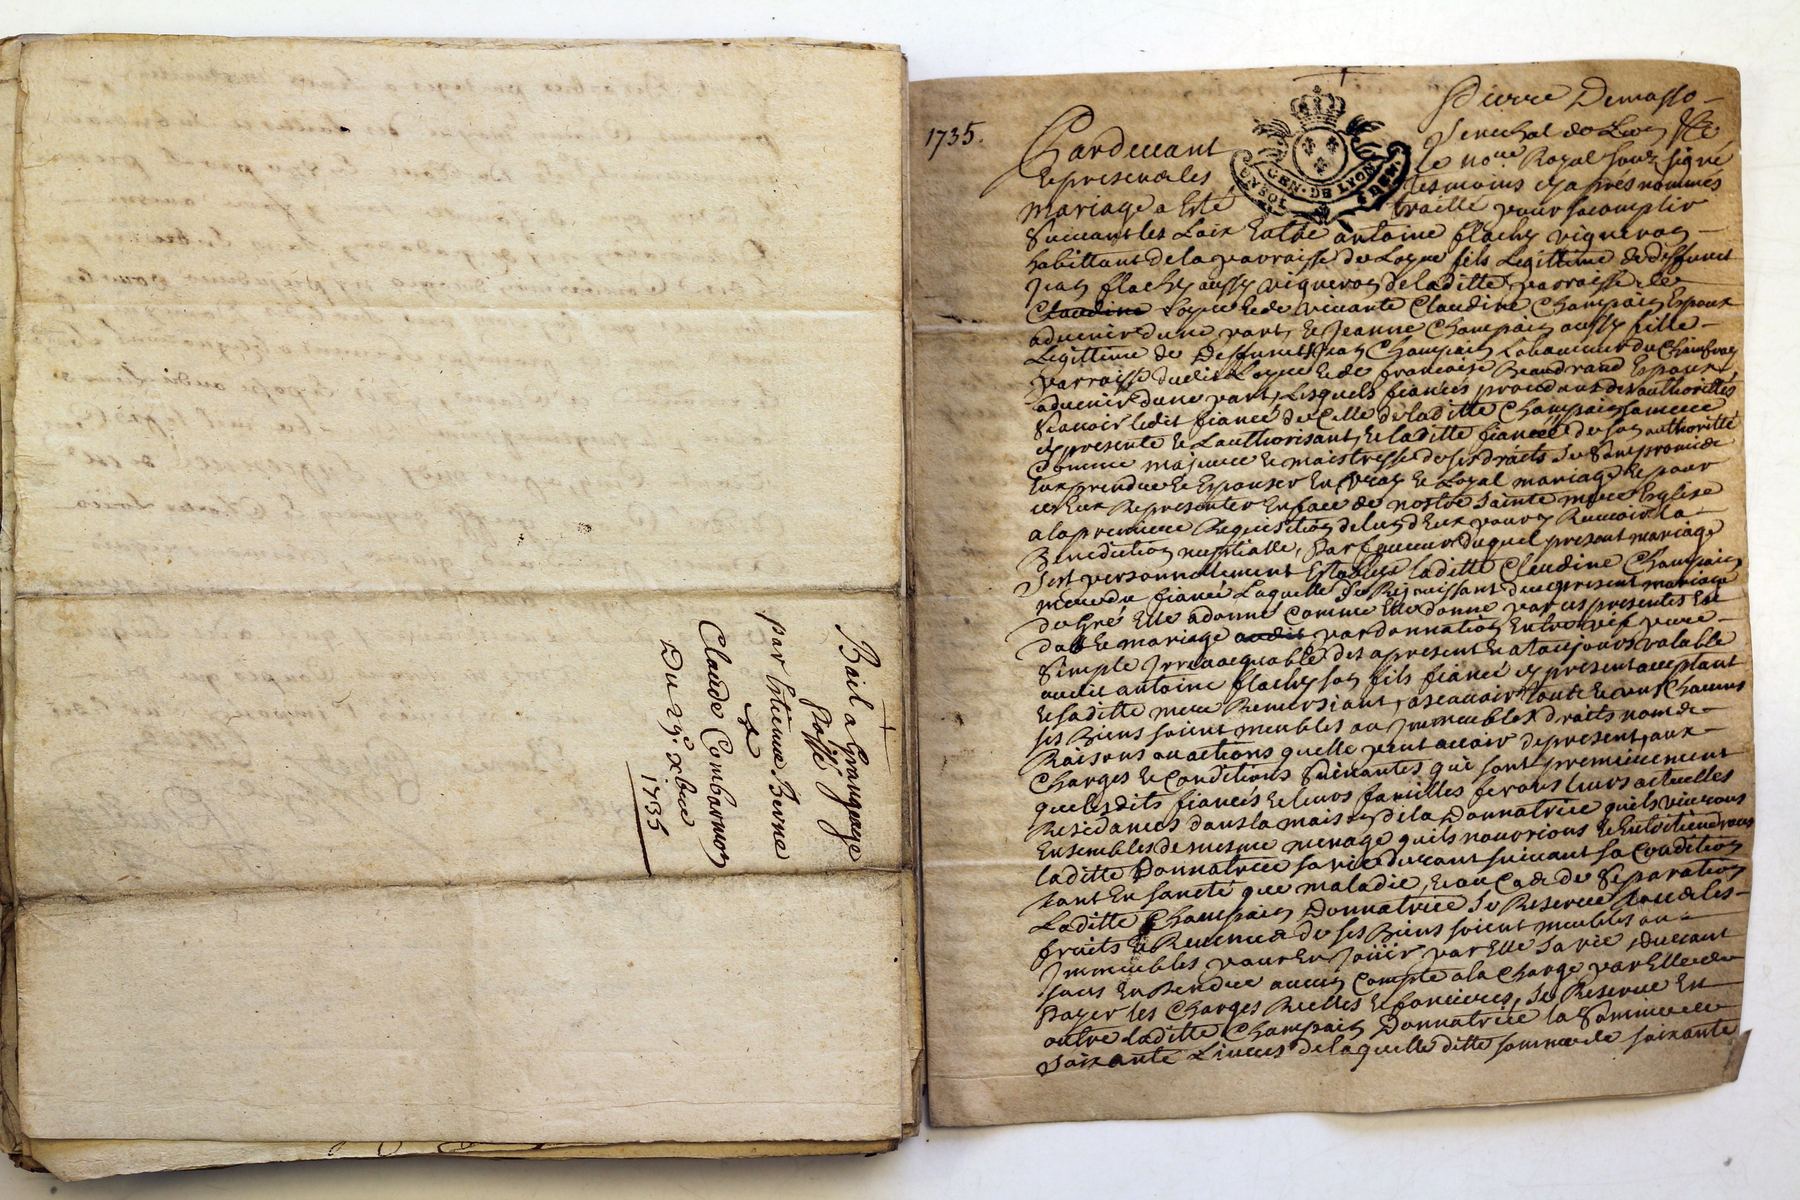 Bail a Grangeage
passé
par Estienne Berne
a
Claude Combarnon
Du 29e xbre
1735
1735.
Pierre Demasso
Pardevant
Senechal de Lion &c
GEN. DE LYON
le nore Royal sous signé
Et presence les
tesmoins cy apres nommés
mariage a esté
traitté pour sacomplir
Suivant les Loix Entre antoine flachy vigneron
habittant de la parroisse de Loyre fils Legittime de deffunct
Jean flachy aussy vigneron de laditte parroisse de
Loyre Et de vivante Claudine Champain Espoux
advenir dune part, Et Jeanne Champain aussy fille
Legittime de Deffunct Jean Champain Laboureur du
parroisse dudit Loyre Et de francoise Beaudrand Espouse
advenir dune part, Lesquels fiancés procedent des authorittés
Scavoir ledit fiancé de Celle de laditte Champain sa mere
cy presente Et Lauthorisant, Et laditte fiancée de son authoritté
Comme majeure Et maistresse de ses droits se sont promis de
Eux prendre Et Espouser En vray Et Loyal mariage Et pour
ce Eux Representer En face de nostre Sainte mere Eglise
a la premiere Requisition de lun deux pour y Recevoir la
Benediction nuptialle, En faveur duquel present mariage
sest personnellement Establye laditte Claudine Champain
mere du fiancé Laquelle se Rejouissant du present mariage
de gré Elle a donné Comme Elle donne par ces presentes En
dot Et mariage par donnation Entre vif pure
Simple Irrevocquable des apresent Et a tousjours valable
audit antoine flachy son fils fiancé cy present acceptant
Et saditte mere Remerciant, ascavoir toute Et uns Chacuns
ses Biens soient meubles ou Immeubles droits noms
Raisons ou actions quelle peut avoir de present, aux
Charges Et Conditions Suivantes qui sont premierement
que lesdits fiancés Et leurs familles feront leurs actuelles
Residances dans la maison de la Donnatrice quils vivront
Ensembles de mesme menage quils nouriront Et Entretiendront
laditte Donnatrice sa vie durant suivant sa Condition
tant En santé que maladie, Et au Cas de Separation
Laditte Champain Donnatrice se Reserve tous les
fruits Et Revenus de ses Biens soient meubles ou
Immeubles pour En jouir par Elle sa vie durant
sans En Rendre aucun Compte a la Charge par Elle de
payer les Charges Reelles Et foncieres, se Reserve En
outre laditte Champain Donnatrice la Somme de
soixante Livres de laquelle ditte somme de soixante